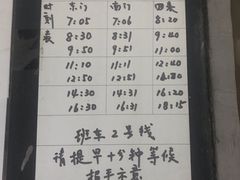 时刻表
东门 南门 回来
7:05 7:06 8:20
8:30 8:31 9:40
9:50 9:51 11:00
11:10 11:11 12:40
12:50 12:51
14:30 14:31 16:20
16:30 16:31 18:15
班车2号线
请提早十分钟等候
招手示意